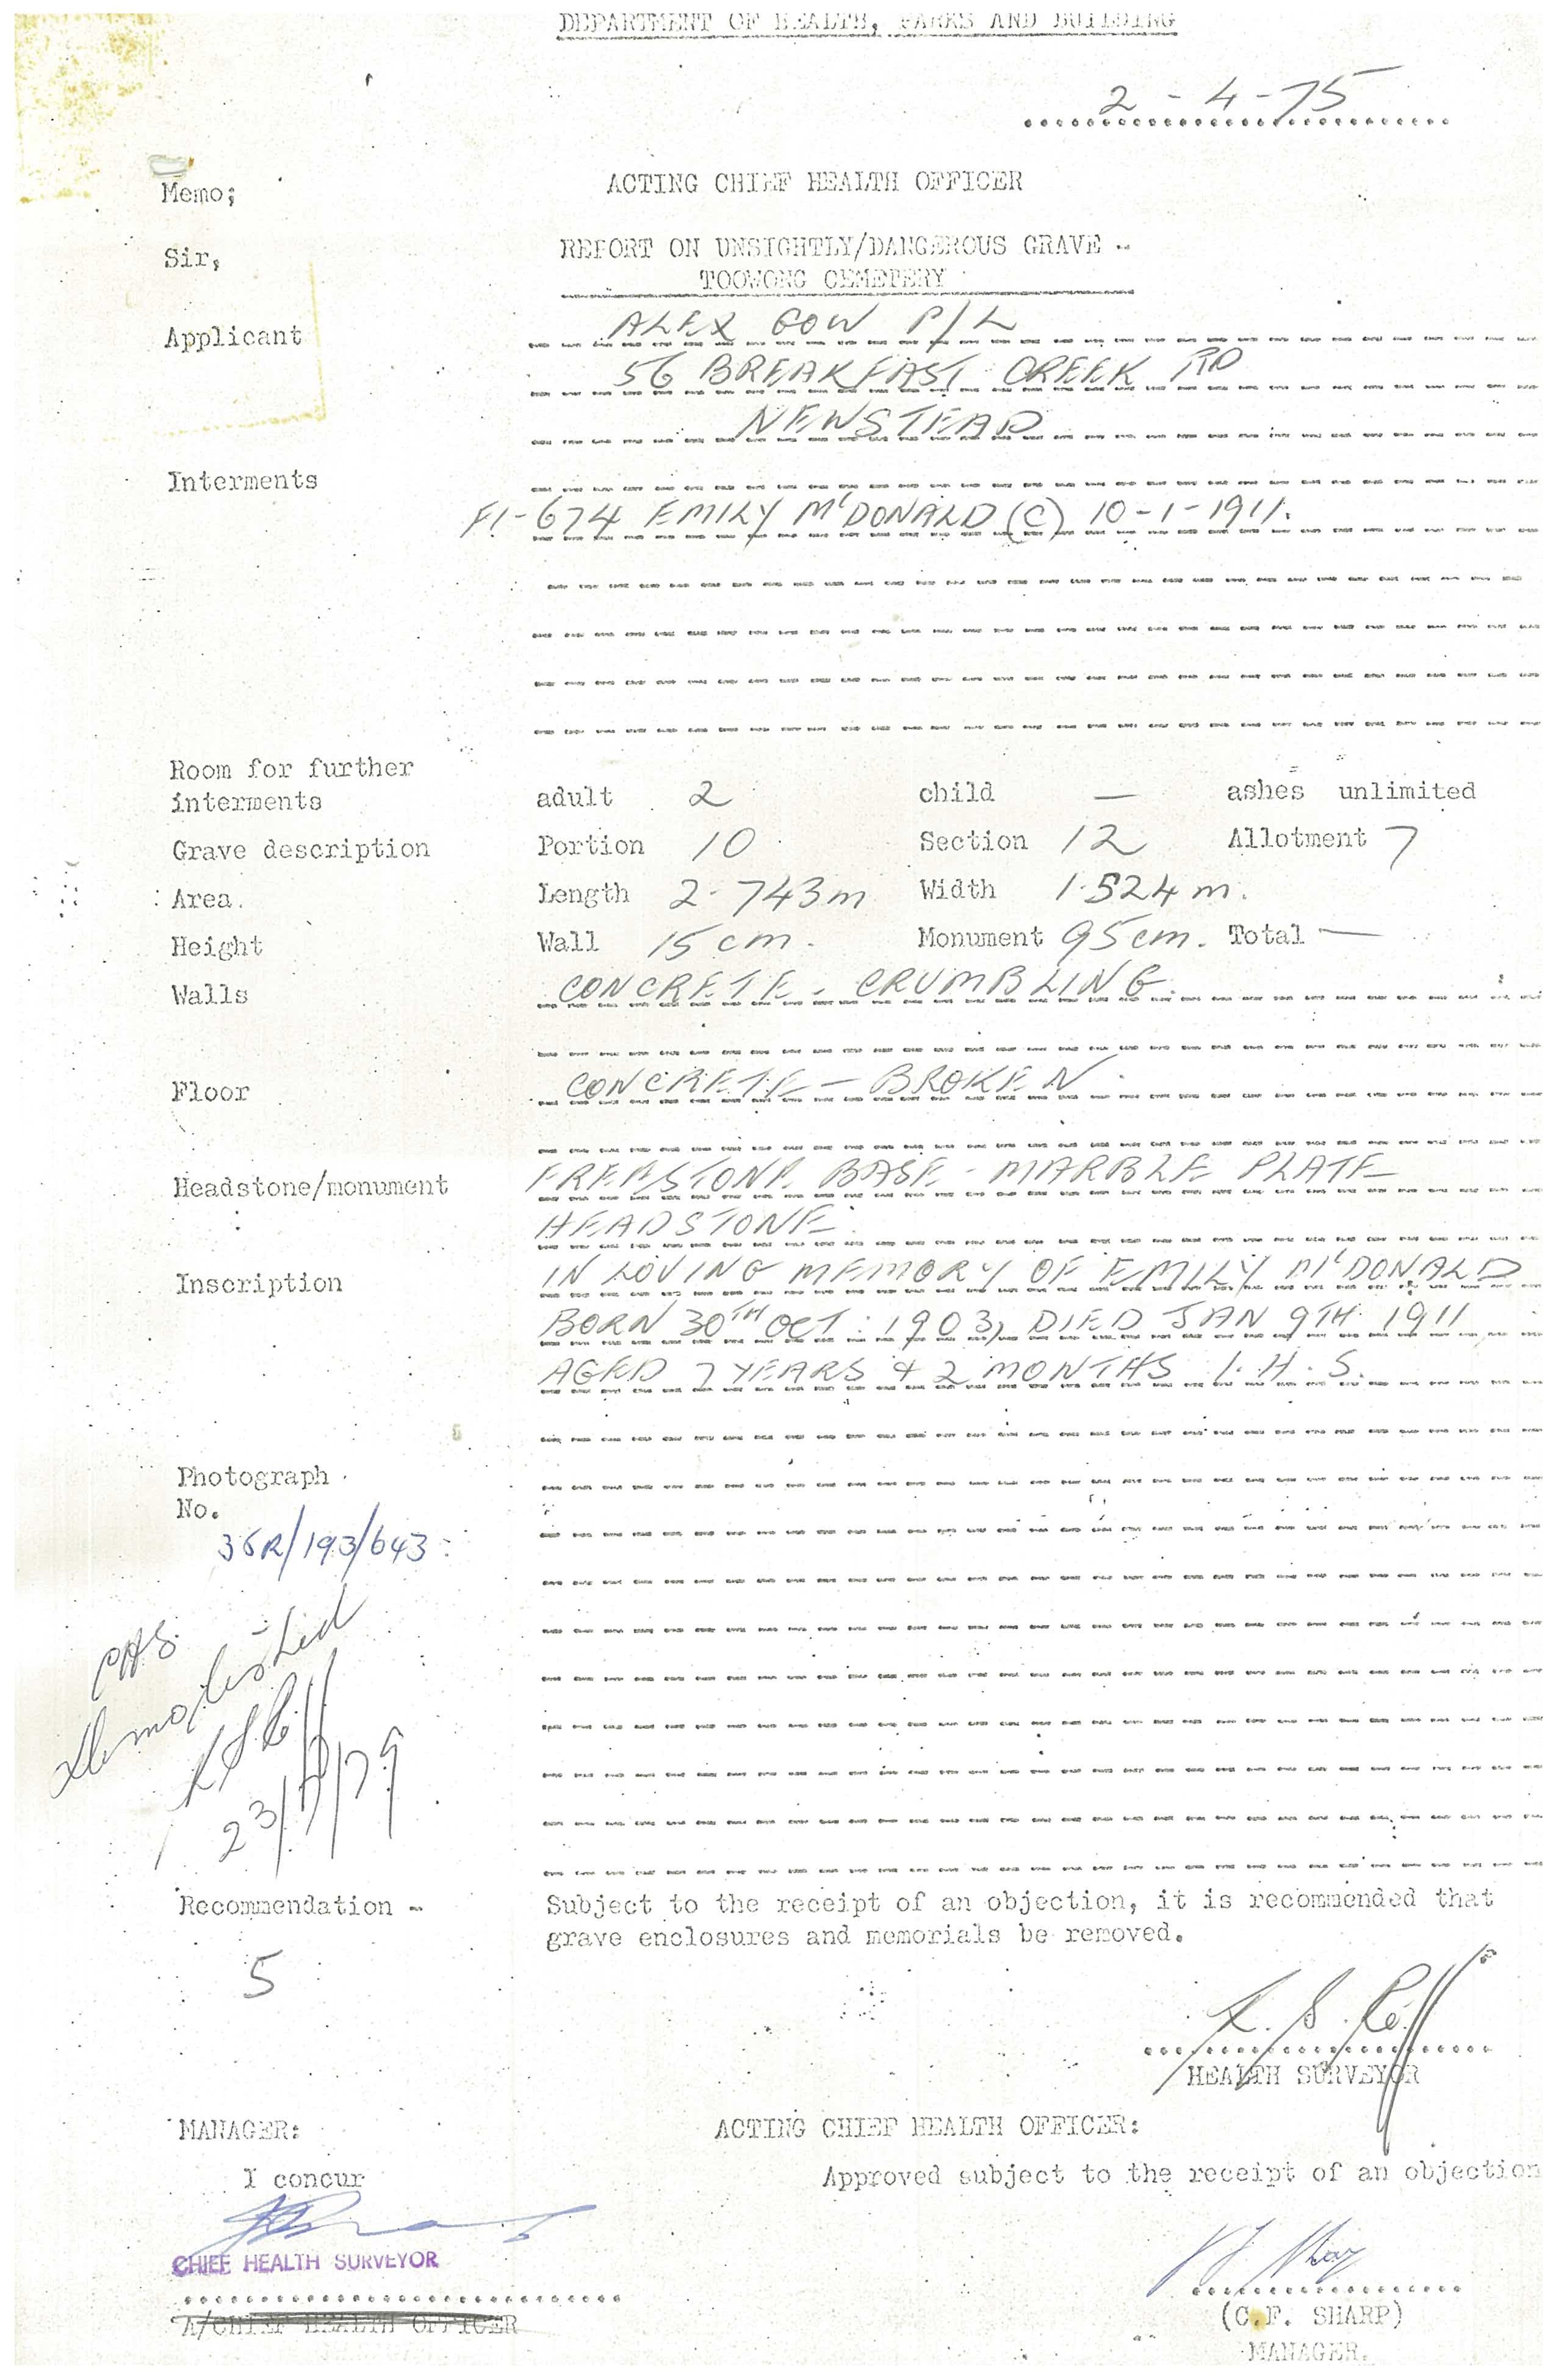 DEPARTMENT OF HEALTH, PARKS AND BUILDING
2-4-75
Memo;
ACTING CHIEF HEALTH OFFICER
Sir,
REPORT ON UNSIGHTLY/DANGEROUS GRAVE -
TOOWONG CEMETERY
Applicant ALEX GOW P/L
56 BREAKFAST CREEK RD
NEWSTEAD
Interments
F1-674 EMILY McDONALD (C) 10-1-1911.
Room for further
interments adult 2 child — ashes unlimited
Grave description Portion 10 Section 12 Allotment 7
Area. Length 2.743m Width 1.524m.
Height Wall 15cm. Monument 95cm. Total —
Walls CONCRETE - CRUMBLING.
Floor CONCRETE - BROKEN.
Headstone/monument FREESTONE BASE - MARBLE PLATE
HEADSTONE.
Inscription IN LOVING MEMORY OF EMILY McDONALD
BORN 30TH OCT: 1903, DIED JAN 9TH 1911
AGED 7 YEARS & 2 MONTHS I.H.S.
Photograph
No.
35R/193/643
Demolished
Recommendation - Subject to the receipt of an objection, it is recommended that
grave enclosures and memorials be removed.
5
HEALTH SURVEYOR
MANAGER: ACTING CHIEF HEALTH OFFICER:
I concur Approved subject to the receipt of an objection
CHIEF HEALTH SURVEYOR
A/CHIEF HEALTH OFFICER
(C.F. SHARP)
MANAGER.